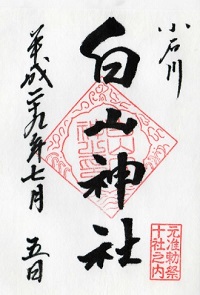 小石川
白山神社
平成二十九年七月
五日
元准勅祭
十社之内